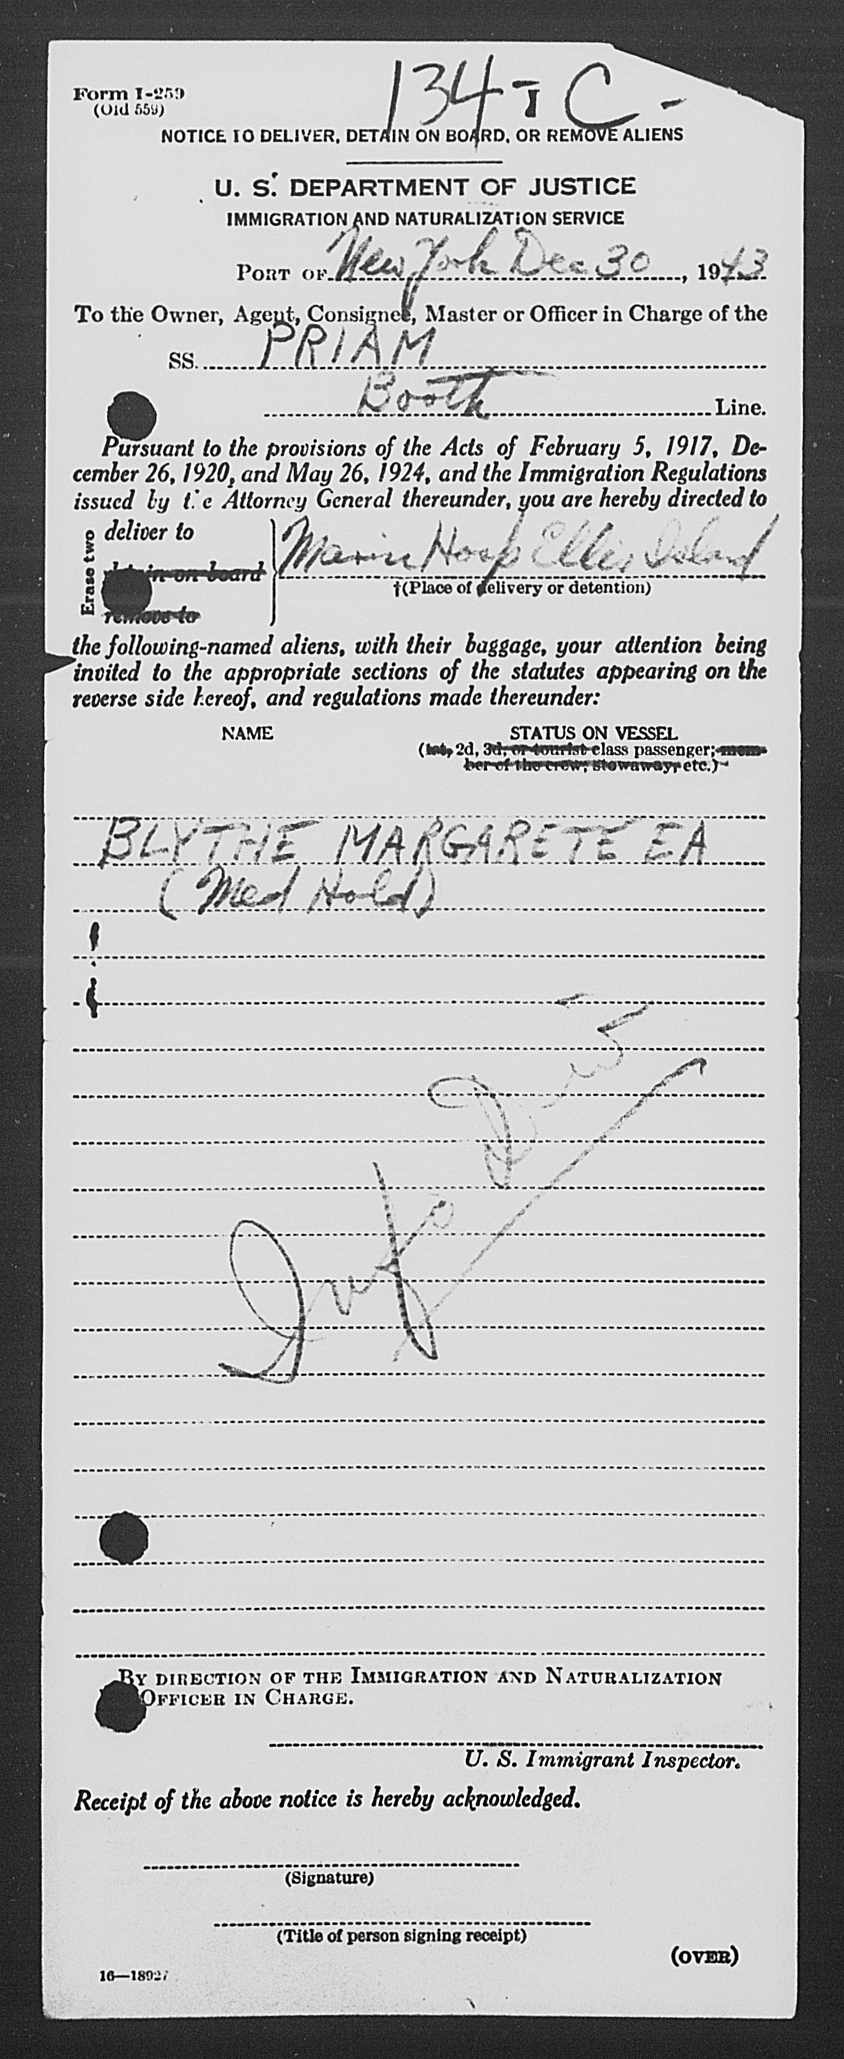 Form I-259
(Old 559)
134 I C -
NOTICE TO DELIVER, DETAIN ON BOARD, OR REMOVE ALIENS
U. S. DEPARTMENT OF JUSTICE
IMMIGRATION AND NATURALIZATION SERVICE
PORT OF New York Dec 30, 1943
To the Owner, Agent, Consignee, Master or Officer in Charge of the
SS. PRIAM
Booth Line.
Pursuant to the provisions of the Acts of February 5, 1917, De-
cember 26, 1920, and May 26, 1924, and the Immigration Regulations
issued by the Attorney General thereunder, you are hereby directed to
Erase two
deliver to
in on board
remove to
Marine Hosp Ellis Island
†(Place of delivery or detention)
the following-named aliens, with their baggage, your attention being
invited to the appropriate sections of the statutes appearing on the
reverse side hereof, and regulations made thereunder:
NAME STATUS ON VESSEL
(1st, 2d, 3d, or tourist class passenger; mem-
ber of the crew, stowaway, etc.)
BLYTHE MARGARETE EA
(Med Hold)
BY DIRECTION OF THE IMMIGRATION AND NATURALIZATION
OFFICER IN CHARGE.
U. S. Immigrant Inspector.
Receipt of the above notice is hereby acknowledged.
(Signature)
(Title of person signing receipt)
(OVER)
16—18927